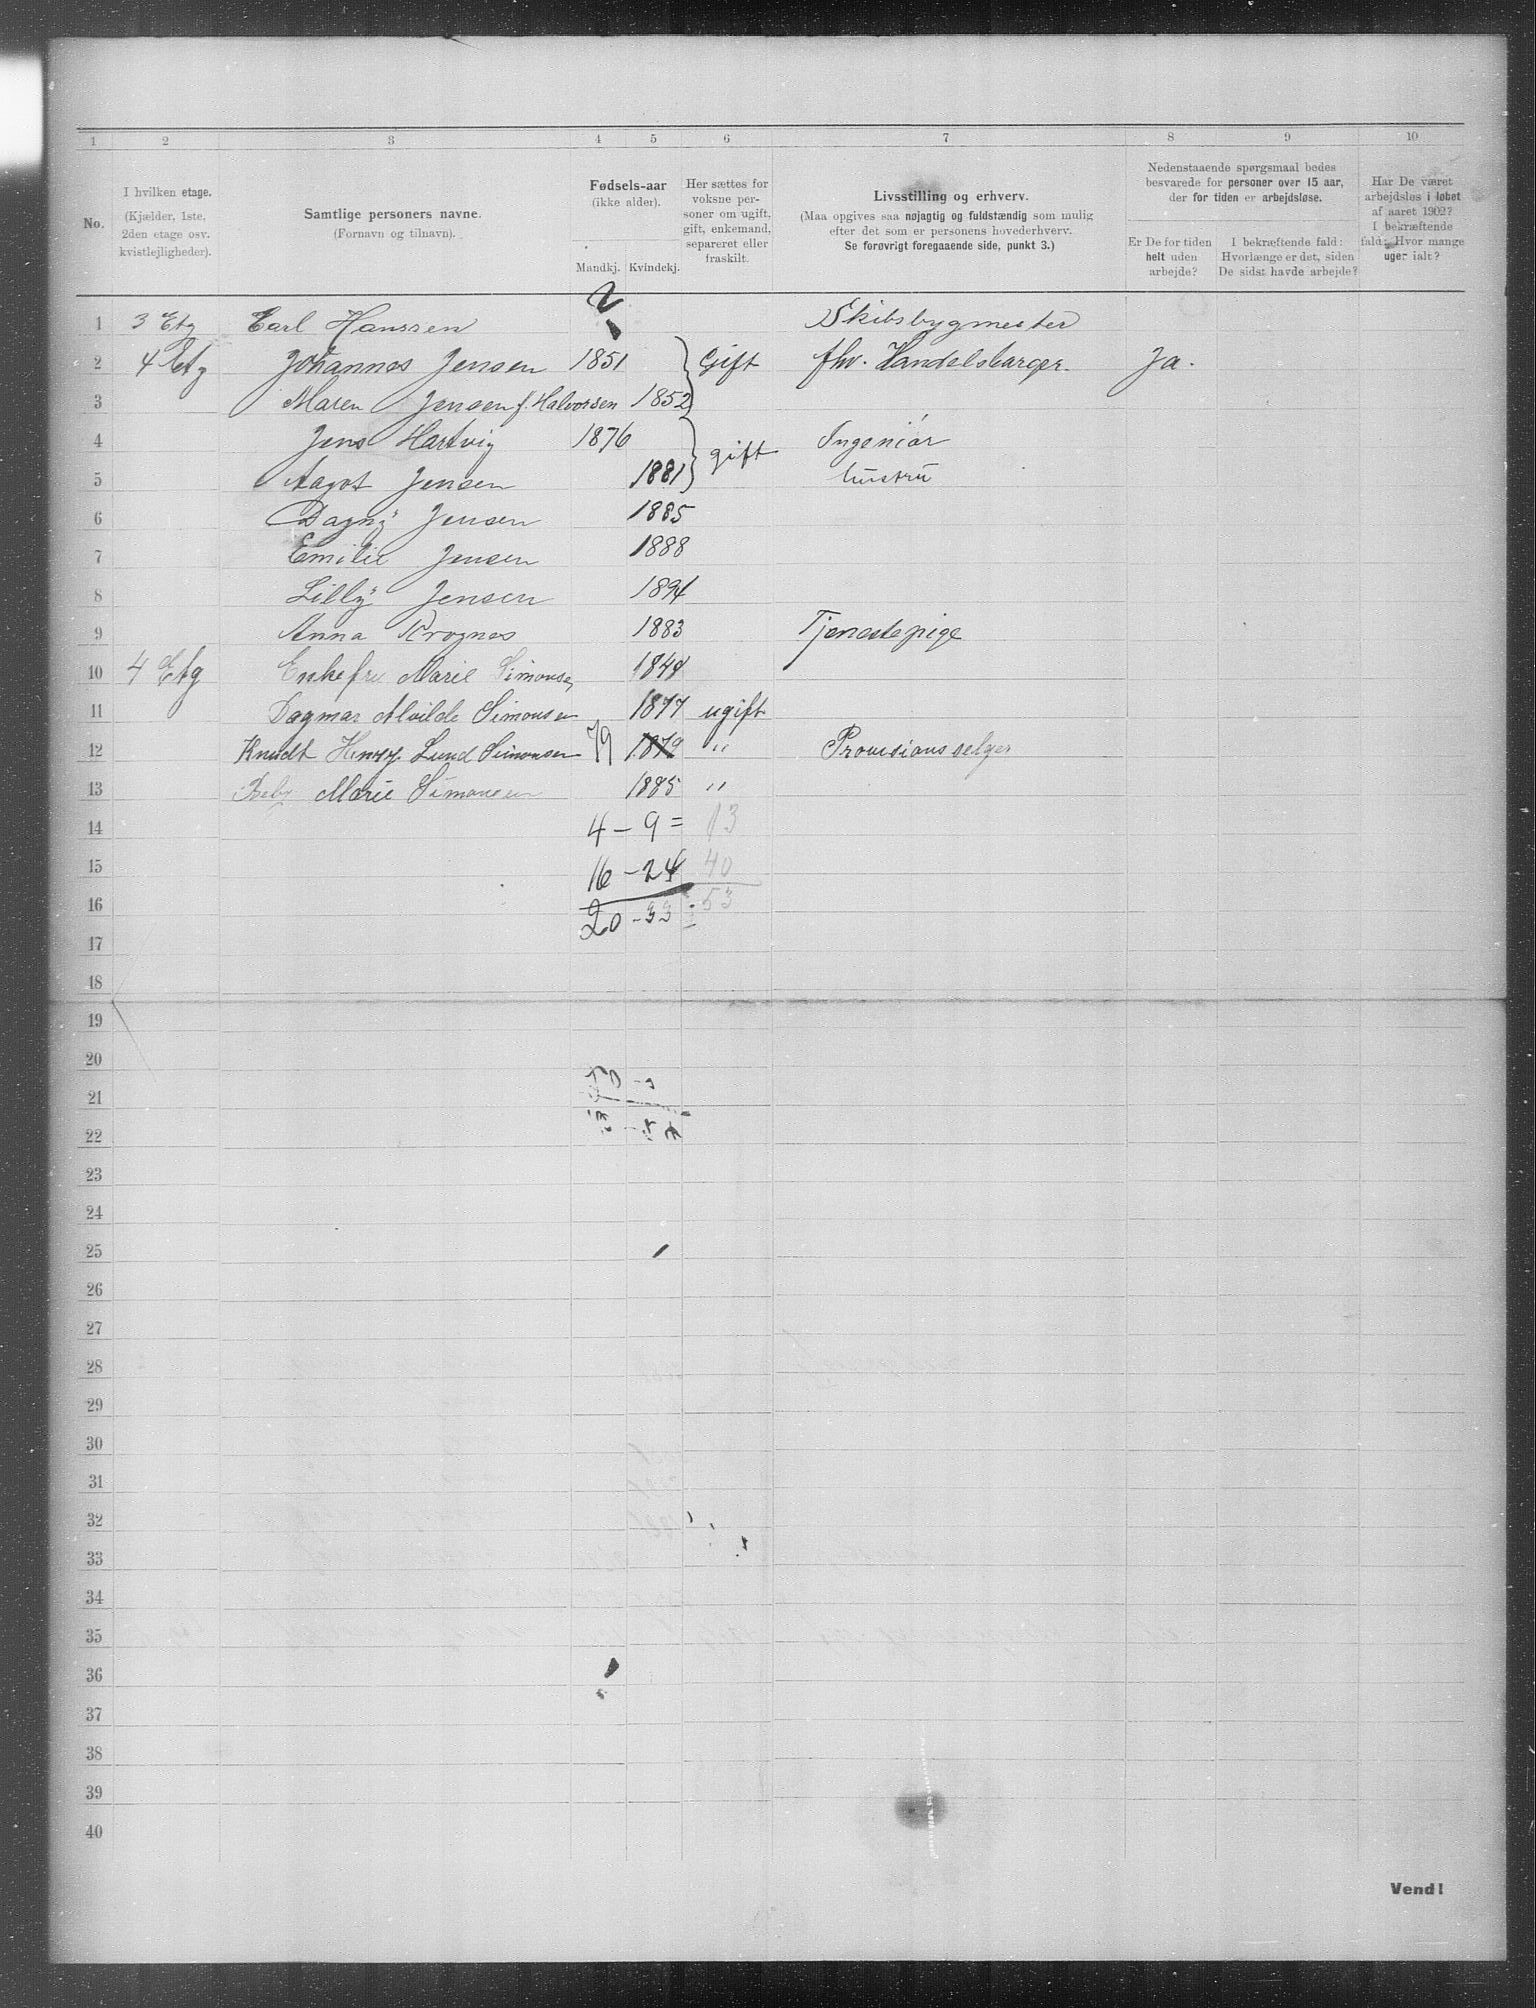 1 2 3 4 5 6 7 8 9 10
No.
I hvilken etage.
(Kjælder, 1ste,
2den etage osv.
kvistlejligheder).
Samtlige personers navne.
(Fornavn og tilnavn).
Fødsels-aar
(ikke alder).
Mandkj. Kvindekj.
Her sættes for
voksne per-
soner om ugift,
gift, enkemand,
separeret eller
fraskilt.
Livsstilling og erhverv.
(Maa opgives saa nøjagtig og fuldstændig som mulig
efter det som er personens hovederhverv.
Se forøvrigt foregaaende side, punkt 3.)
Nedenstaaende spørgsmaal bedes
besvarede for personer over 15 aar,
der for tiden er arbejdsløse.
Er De for tiden
helt uden
arbejde?
I bekræftende fald:
Hvorlænge er det, siden
De sidst havde arbejde?
Har De været
arbejdsløs i løbet
af aaret 1902?
I bekræftende
fald: Hvor mange
uger ialt?
2
1 3 Etg Carl Hanssen Skibsbygmester
2 4 Etg Johannes Jensen 1851 Gift fhv. Handelsborger. Ja.
3 Maren Jensen f. Halvorsen 1852
4 Jens Hartvig 1876 gift Ingeniør
5 Aagot Jensen 1881 hustru
6 Dagny Jensen 1885
7 Emilie Jensen 1888
8 Lilly Jensen 1894
9 Anna Krognes 1883 Tjenestepige
10 4 Etg Enkefru Marie Simonsen 1844
11 Dagmar Alvilde Simonsen 1877 ugift
12 Knudt Henry Lund Simonsen 79 1879 " Provisionsselger
13 Marie Simonsen 1885 "
14 4 - 9 = 13
15 16 - 24 40
16 20 - 33 : 53
17
18
19
20
21
22
23
24
25
26
27
28
29
30
31
32
33
34
35
36
37
38
39
40
Vend!